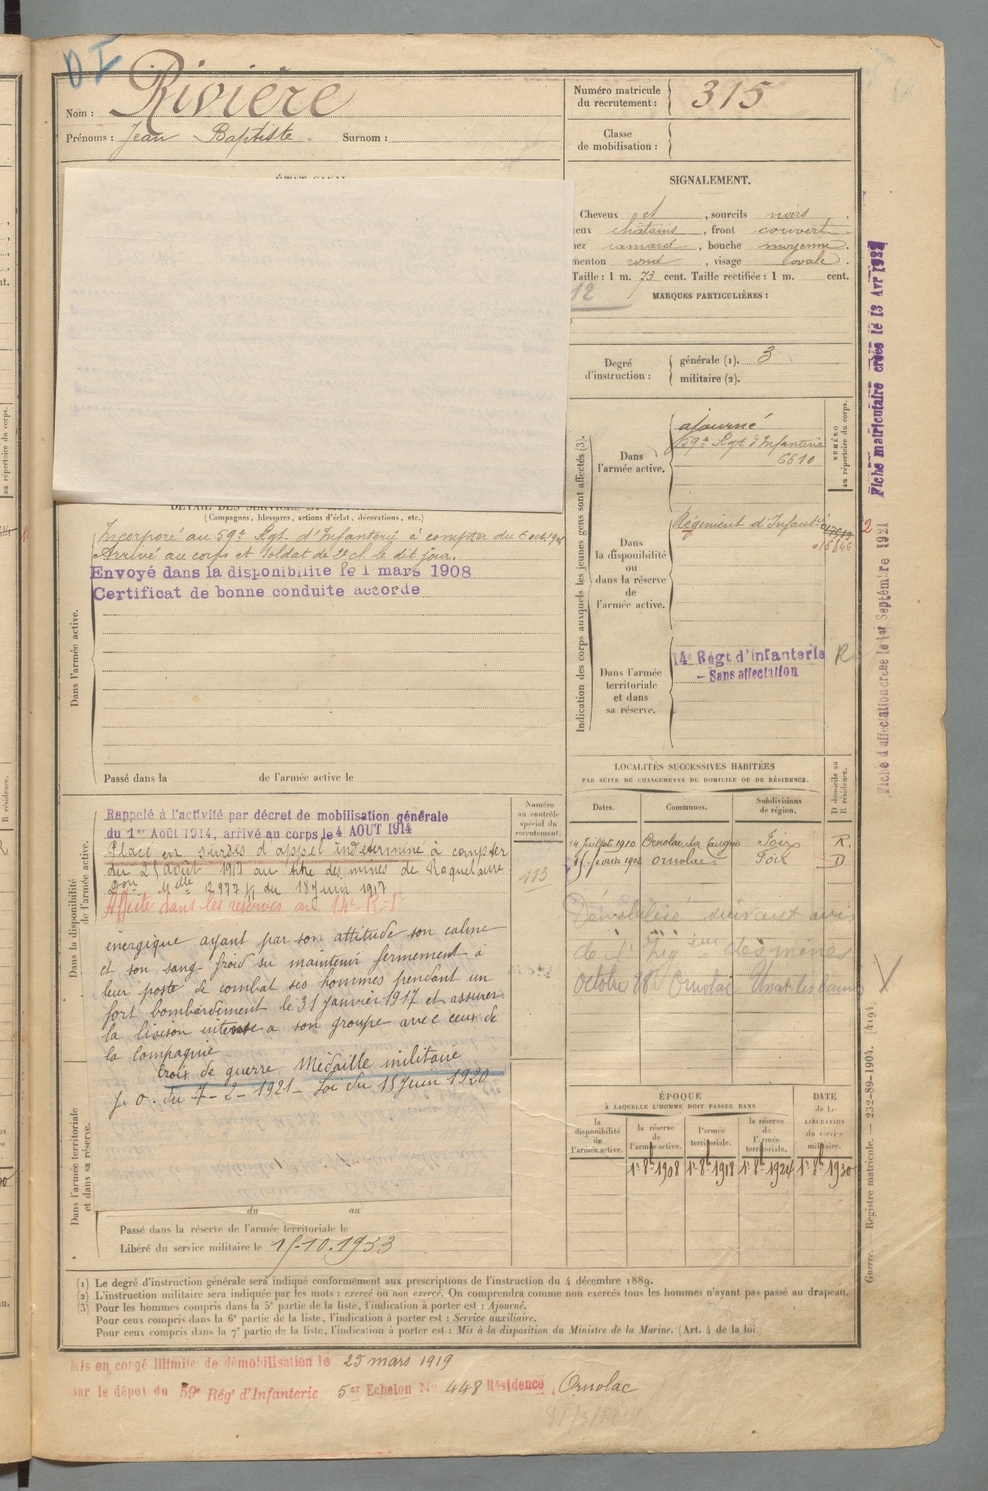 Nom : Rivière
Prénoms : Jean Baptiste Surnom :
Numéro matricule du recrutement : 315
Classe de mobilisation :
SIGNALEMENT.
Cheveux et , sourcils noirs .
eux châtains , front couvert .
nez camard , bouche moyenne .
menton rond , visage ovale .
Taille : 1 m. 73 cent. Taille rectifiée : 1 m. cent.
12
MARQUES PARTICULIÈRES :
Degré d'instruction :
générale (1). 3
militaire (2).
DÉTAIL DES SERVICES ET
(Campagnes, blessures, actions d'éclat, décorations, etc.)
Dans l'armée active.
Incorporé au 59e Rgt. d'Infanterie à compter du
Arrivé au corps et soldat de 2e cl le dit jour.
Envoyé dans la disponibilité le 1 mars 1908
Certificat de bonne conduite accordé
Passé dans la de l'armée active le
Indication des corps auxquels les jeunes gens sont affectés (3).
NUMÉRO au répertoire du corps.
Dans l'armée active.
ajourné
59e Rgt d'Infanterie
6610
Dans la disponibilité ou dans la réserve de l'armée active.
Régiment d'Infanterie
Dans l'armée territoriale et dans sa réserve.
14e Régt d'infanterie R
– Sans affectation
Fiche matriculaire créée le 13 Avr 1921
Fiche d'affectation créée le 1er Septembre 1921
LOCALITÉS SUCCESSIVES HABITÉES
PAR SUITE DE CHANGEMENTS DE DOMICILE OU DE RÉSIDENCE.
Dates. Communes. Subdivisions de région. D domicile ou R résidence.
14 Juillet 1910 Foix R.
Ornolac Foix D
Démobilisé suivant avis
de l'Ing des mines
octobre Ornolac Ussat les bains
Dans la disponibilité de l'armée active.
Numéro au contrôle spécial du recrutement.
113
Rappelé à l'activité par décret de mobilisation générale
du 1er Août 1914, arrivé au corps le 4 AOUT 1914
Placé en sursis d'appel indéterminé à compter
du 25 Août 1917 au titre des mines de
Don Mlle 12977 du 18 Juin 1917
Affecté dans les réserves au 14e R.I.
énergique ayant par son attitude son calme
et son sang-froid su maintenir fermement à
leur poste de combat ses hommes pendant un
fort bombardement le 31 janvier 1917 et assurer
la liaison intense a son groupe avec ceux de
la compagnie
Croix de guerre Médaille militaire
J. O. du 7-2-1921 Loi du 15 Juin 1920
Dans l'armée territoriale et dans sa réserve.
du au
Passé dans la réserve de l'armée territoriale le
Libéré du service militaire le 15.10.1933
ÉPOQUE
À LAQUELLE L'HOMME DOIT PASSER DANS
DATE de la LIBÉRATION du service militaire.
la disponibilité de l'armée active. la réserve de l'armée active. l'armée territoriale. la réserve de l'armée territoriale.
1er 8bre 1908 1er 8bre 1918 1er 8bre 1924 1er 8bre 1930
(1) Le degré d'instruction générale sera indiqué conformément aux prescriptions de l'instruction du 4 décembre 1889.
(2) L'instruction militaire sera indiquée par les mots : exercé ou non exercé. On comprendra comme non exercés tous les hommes n'ayant pas passé au drapeau.
(3) Pour les hommes compris dans la 5e partie de la liste, l'indication à porter est : Ajourné.
Pour ceux compris dans la 6e partie de la liste, l'indication à porter est : Service auxiliaire.
Pour ceux compris dans la 7e partie de la liste, l'indication à porter est : Mis à la disposition du Ministre de la Marine. (Art. 4 de la loi.
Guerre. — Registre matricule. — 232-89-1904. [4194]
Mis en congé illimité de démobilisation le 25 mars 1919
par le dépot du 59e Rég d'Infanterie 5e Echelon No 448 Résidence Ornolac